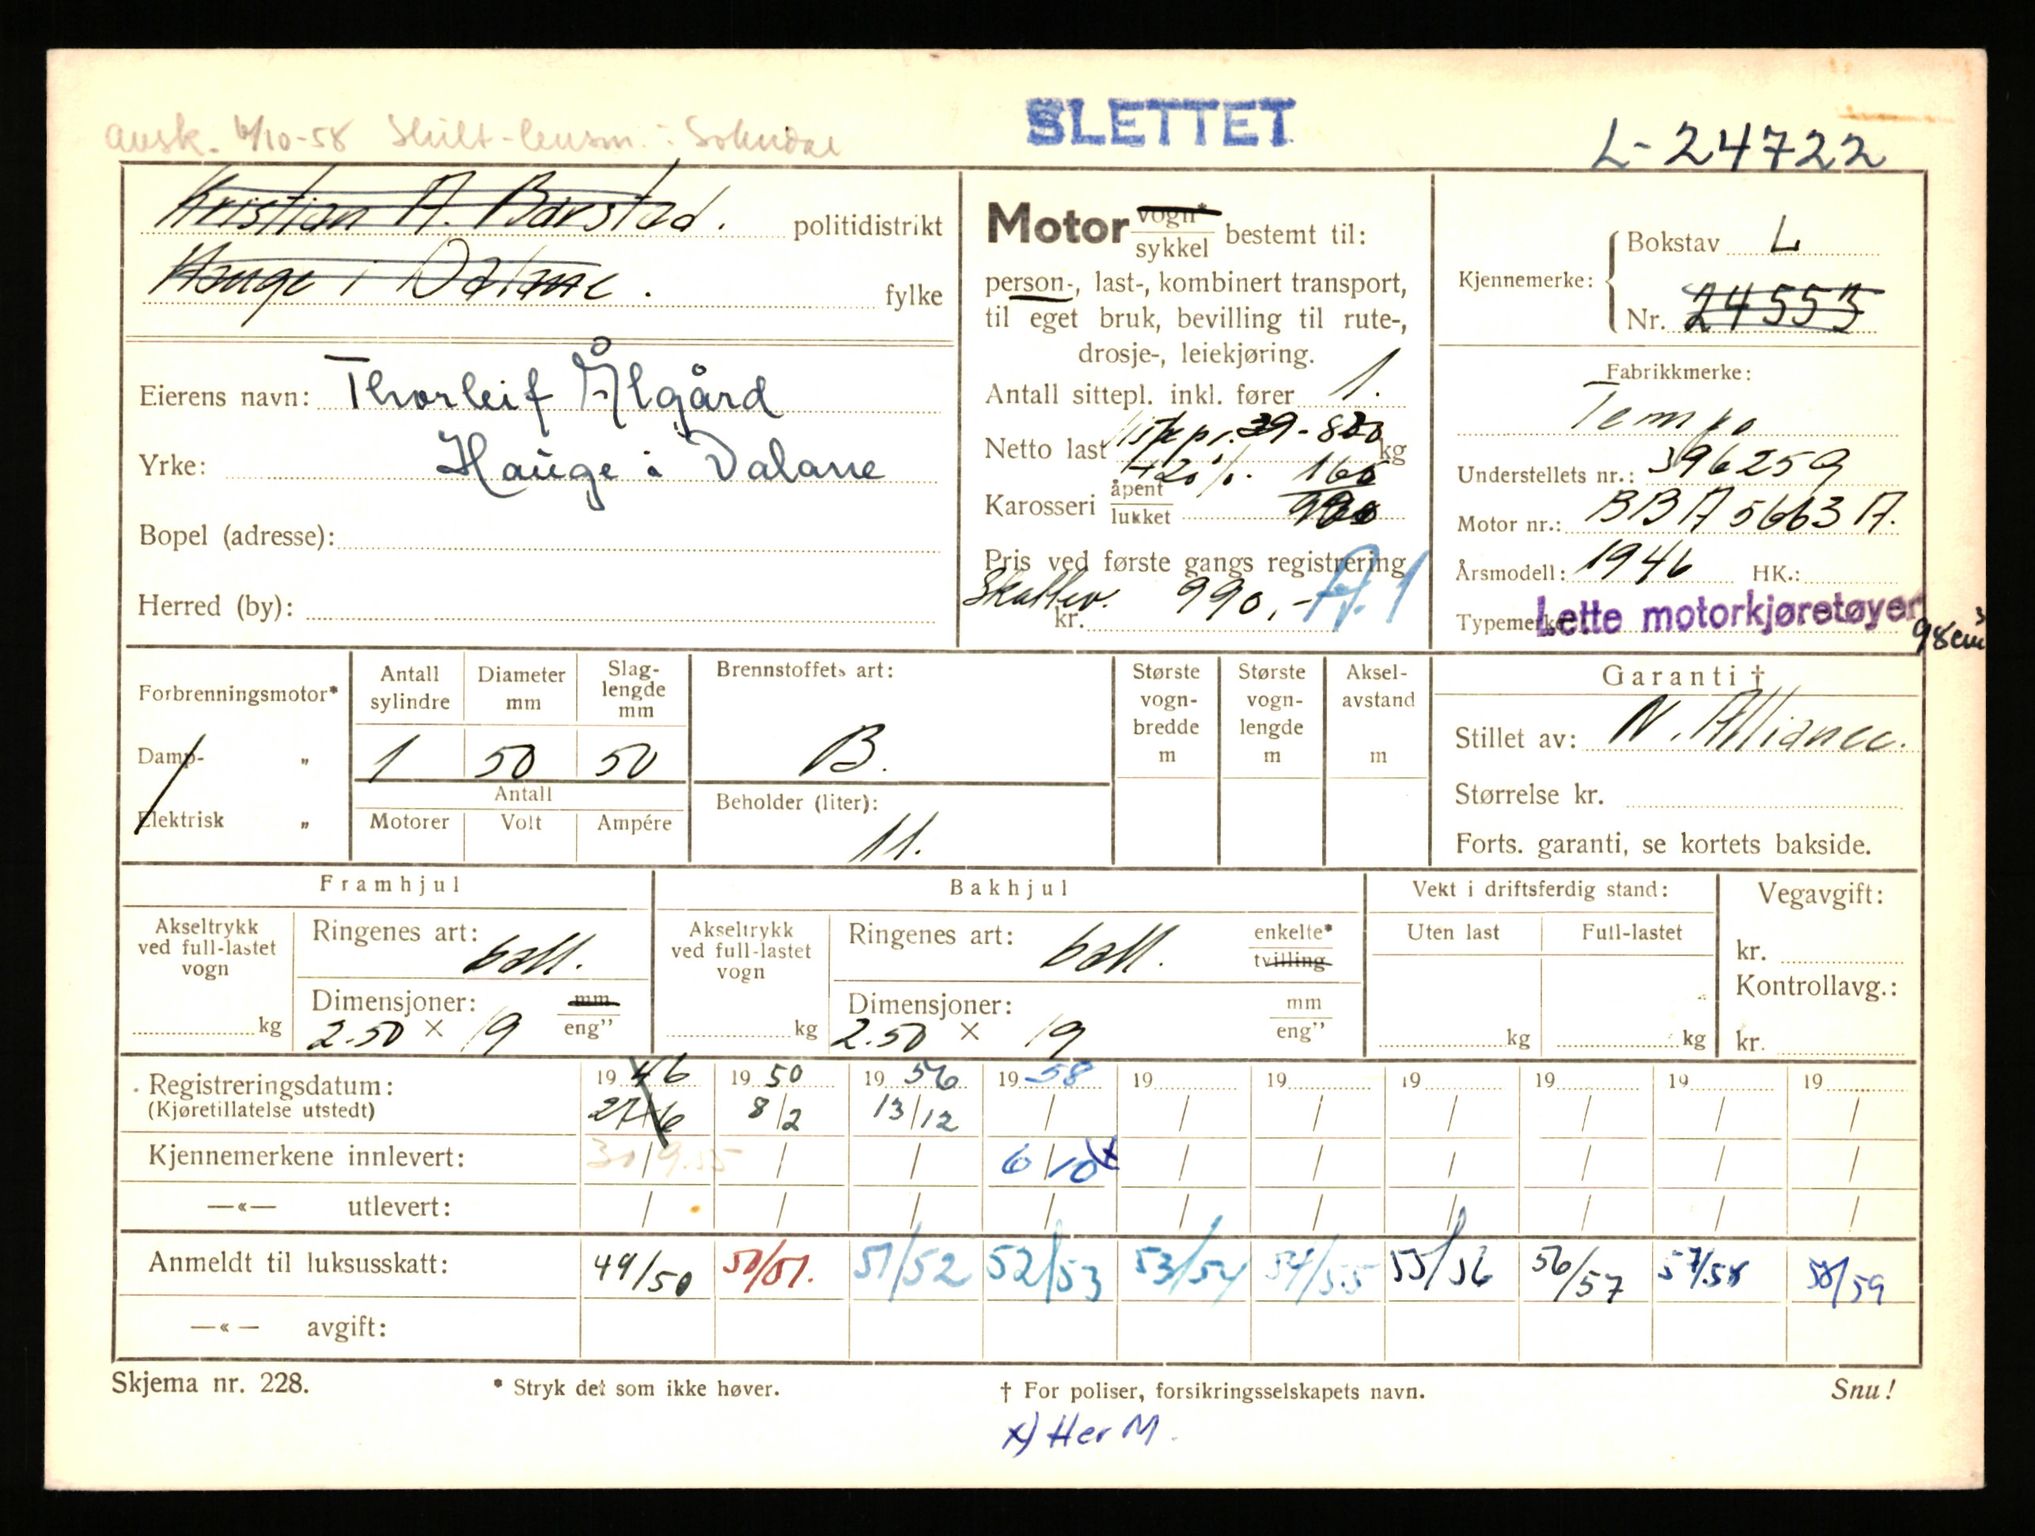 Avsk. 6/10-58 Skilt-lensm. i Sokndal
SLETTET
L-24722
Kristian A. Barstad. politidistrikt
Hauge i Dalane. fylke
Eierens navn: Thorleif Ålgård
Yrke: Hauge i Dalane
Bopel (adresse):
Herred (by):
Motor vogn* sykkel bestemt til:
person-, last-, kombinert transport,
til eget bruk, bevilling til rute-,
drosje-, leiekjøring.
Antall sittepl. inkl. fører 1.
Netto last pr. 39-830 kg
+20% 165
Karosseri åpent lukket
Pris ved første gangs registrering
Skattev. kr. 990,- A.1
Kjennemerke: Bokstav L
Nr. 24553
Fabrikkmerke:
Tempo
Understellets nr.: 396259
Motor nr.: BBA 5663 A.
Årsmodell: 1946 HK.:
Typemerke: Lette motorkjøretøyer 98cm³
Forbrenningsmotor*
Damp- "
Elektrisk "
Antall sylindre
Diameter mm
Slag-lengde mm
1 50 50
Antall
Motorer Volt Ampére
Brennstoffets art:
B.
Beholder (liter):
11.
Største vogn-bredde m
Største vogn-lengde m
Aksel-avstand m
Garanti †
Stillet av: N. Alliance.
Størrelse kr.
Forts. garanti, se kortets bakside.
Framhjul
Akseltrykk ved full-lastet vogn
kg
Ringenes art: ball.
Dimensjoner: mm eng"
2.50 × 19
Bakhjul
Akseltrykk ved full-lastet vogn
kg
Ringenes art: ball. enkelte* tvilling
Dimensjoner: mm eng"
2.50 × 19
Vekt i driftsferdig stand:
Uten last Full-lastet
kg kg
Vegavgift:
kr.
Kontrollavg.:
kr.
Registreringsdatum: 19 46 19 50 19 56 19 58 19 19 19 19 19 19
(Kjøretillatelse utstedt) 27/6 8/2 13/12 / / / / / / /
Kjennemerkene innlevert: 30/9.55 / / 6/10 x / / / / / /
—«— utlevert: / / / / / / / / / /
Anmeldt til luksusskatt: 49/50 50/51. 51/52 52/53 53/54 54/55 55/56 56/57 57/58 58/59
—«— avgift:
Skjema nr. 228.
* Stryk det som ikke høver.
† For poliser, forsikringsselskapets navn.
Snu!
x) Her M.